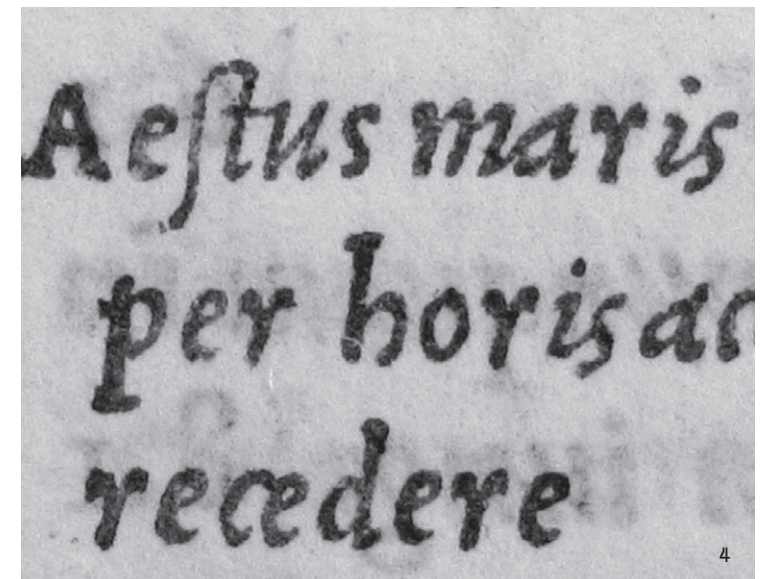 Aeſtus maris
per horis ac
recedere
4